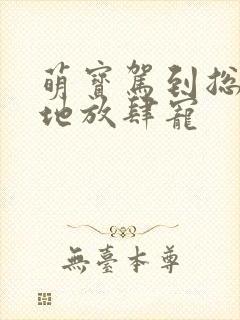 萌寶駕到總
地放肆寵
無臺本尊